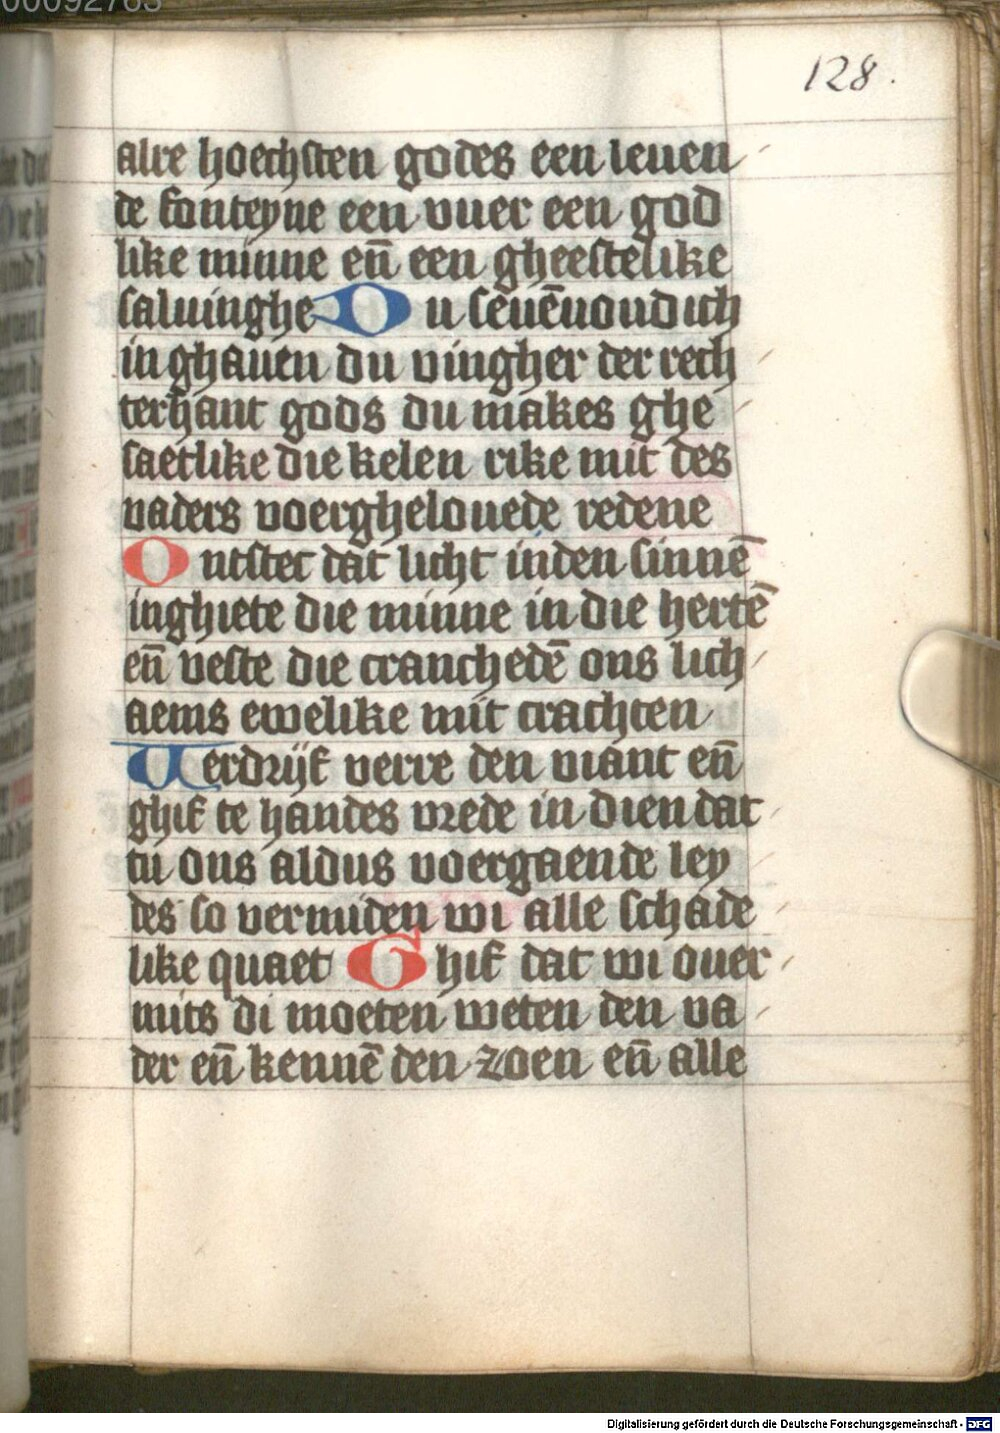 00092783
128.
alre hoechsten godes een leuen
de fonteyne een vuer een god
like minne en̄ een gheestelike
saluinghe Du seuēuoudich
in ghauen du vingher der rech
terhant gods du makes ghe
saetlike die kelen rike mit des
vaders voerghelouede redene
Ontstec dat licht inden sinnē
inghiete die minne in die hertē
en̄ veste die cranchedē ons lich
aems ewelike mit crachten
Verdrijf verre den viant en̄
ghif te handes vrede in dien dat
tu ons aldus voergaende ley
des so vermiden wi alle schade
like quaet Ghif dat wi ouer
mits di moeten weten den va
der en̄ kennē den zoen en̄ alle
Digitalisierung gefördert durch die Deutsche Forschungsgemeinschaft - DFG